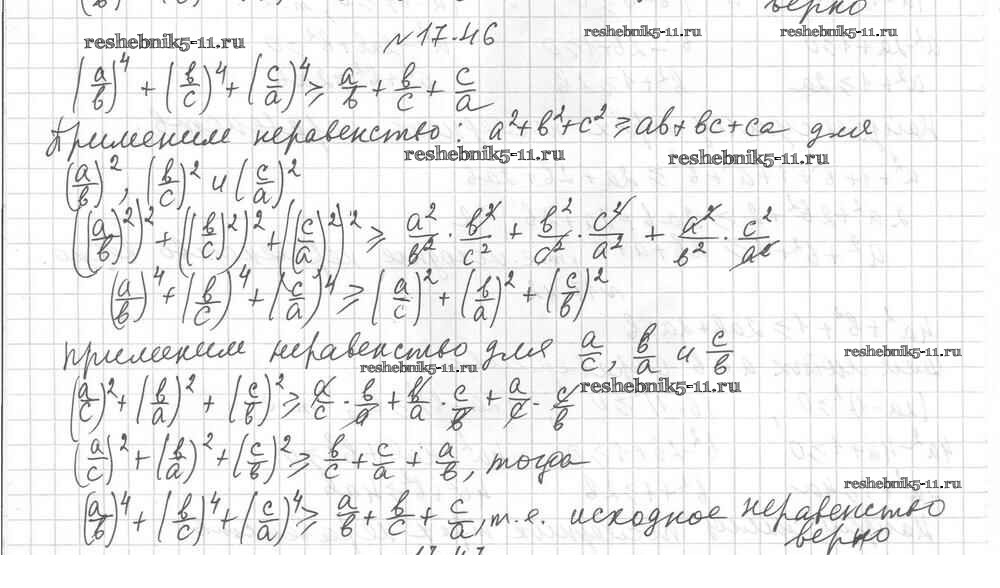 верно
reshebnik5-11.ru reshebnik5-11.ru reshebnik5-11.ru
№17.46
(a/в)^4 + (в/c)^4 + (c/a)^4 ≥ a/в + в/c + c/a
Применим неравенство: a²+в²+c² ≥ aв+вc+ca для
reshebnik5-11.ru reshebnik5-11.ru
(a/в)², (в/c)² и (c/a)²
((a/в)²)² + ((в/c)²)² + ((c/a)²)² ≥ a²/в² · в²/c² + в²/c² · c²/a² + a²/в² · c²/a²
(a/в)^4 + (в/c)^4 + (c/a)^4 ≥ (a/c)² + (в/a)² + (c/в)²
применим неравенство для a/c, в/a и c/в
reshebnik5-11.ru reshebnik5-11.ru
reshebnik5-11.ru
(a/c)² + (в/a)² + (c/в)² ≥ a/c · в/a + в/a · c/в + a/c · c/в
(a/c)² + (в/a)² + (c/в)² ≥ в/c + c/a + a/в, тогда
reshebnik5-11.ru
(a/в)^4 + (в/c)^4 + (c/a)^4 ≥ a/в + в/c + c/a, т.е. исходное неравенство
верно